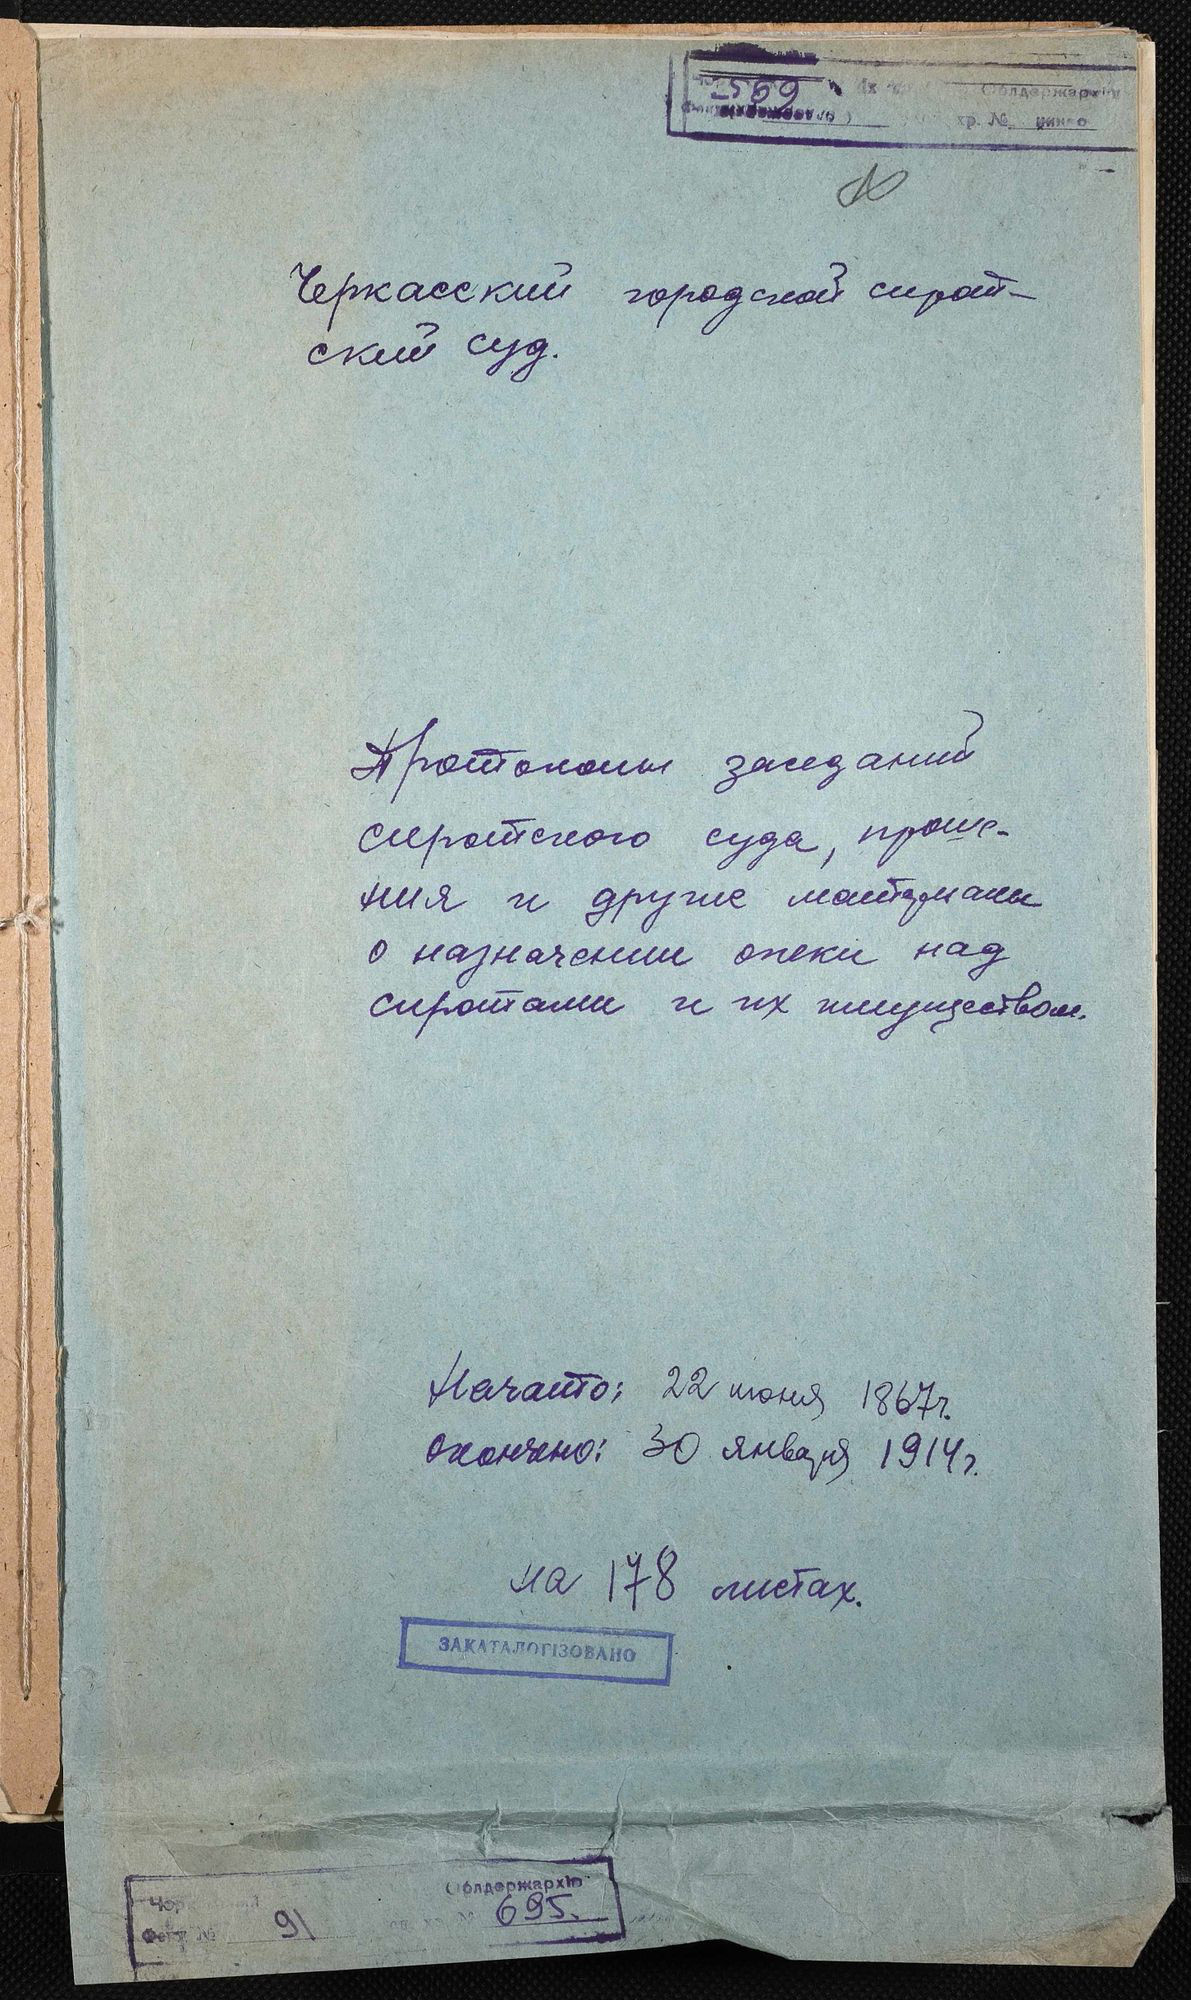 Облдержархів
хр. №
Черкасский городской сирот-
ский суд.
Протоколы заседаний
сиротского суда, проше-
ния и другие материалы
о назначении опеки над
сиротами и их имуществом.
Начато: 22 июня 1867 г.
Окончено: 30 января 1914 г.
на 178 листах.
ЗАКАТАЛОГІЗОВАНО
Облдержархів
Фонд № 91 од. хр. № 695.